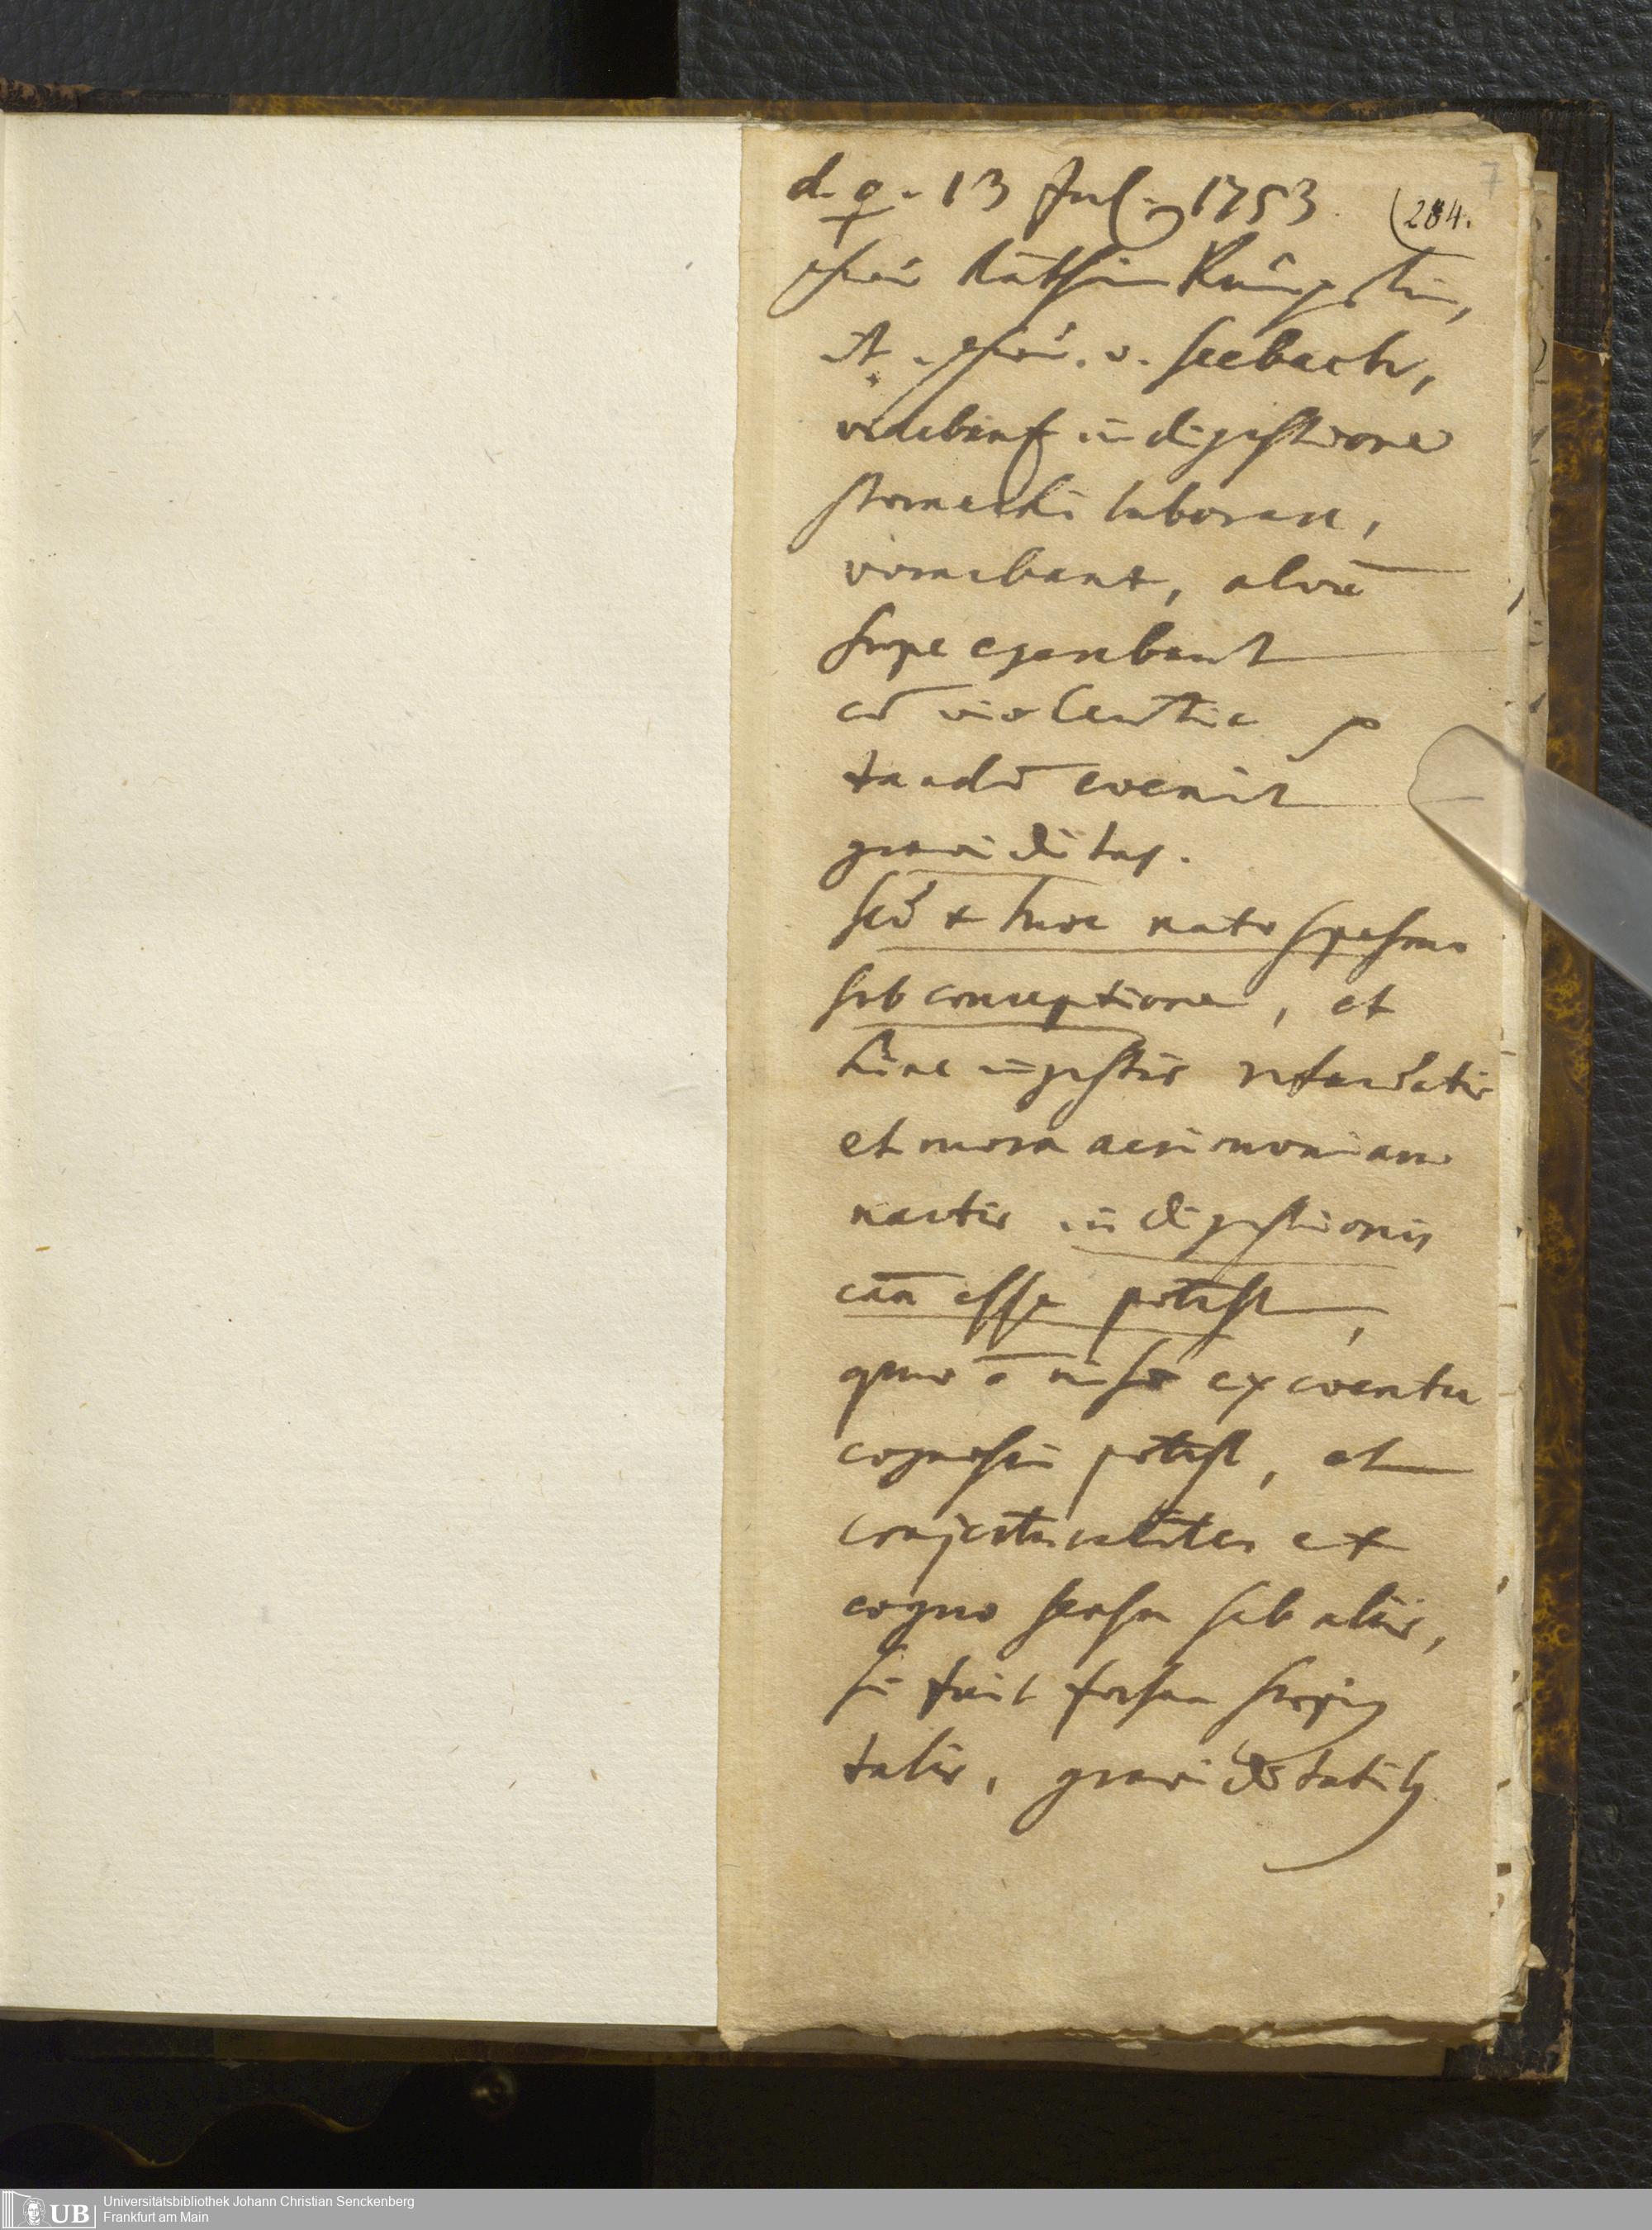 7
d. ♀. 13 Jul. 1753. (284.
Räthin
it. v. Seebach,
videbant indigestione
stomachi laborare,
vomebant, alvū
saepe egerebant
cū violentia &
tandē evenit
graviditas.
sed & hoc nato spasmo
sub conceptione, et
hinc ingestis retardatis
et mora acrimoniam
nactis indigestionis
cāa esse potest,
quae ō nisi ex eventu
cognosci potest, et
conjecturaliter ex
cogno sensu sub aliis,
si fuit forsan saepius
talis, graviditatibus
UB Universitätsbibliothek Johann Christian Senckenberg
Frankfurt am Main